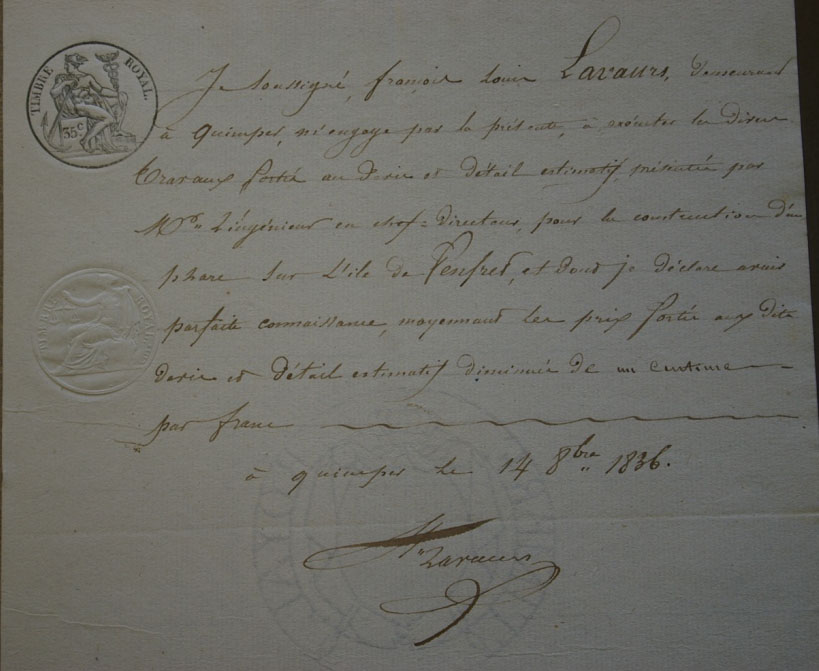 TIMBRE ROYAL.
35 c.
Je soussigné, françois Louis Lavaurs, demeurant
à Quimper, m'engage par la présente, à exécuter les divers
travaux portés au devis et détail estimatif, présentés par
Mr. L'ingénieur en chef=directeur, pour la construction d'un
phare sur L'ile de Penfret, et dont je déclare avoir
parfaite connaissance, moyennant les prix portés aux dits
devis et détail estimatif diminués de un centime
par franc
à quimper le 14 8bre 1836.
Lavaurs
TIMBRE ROYAL